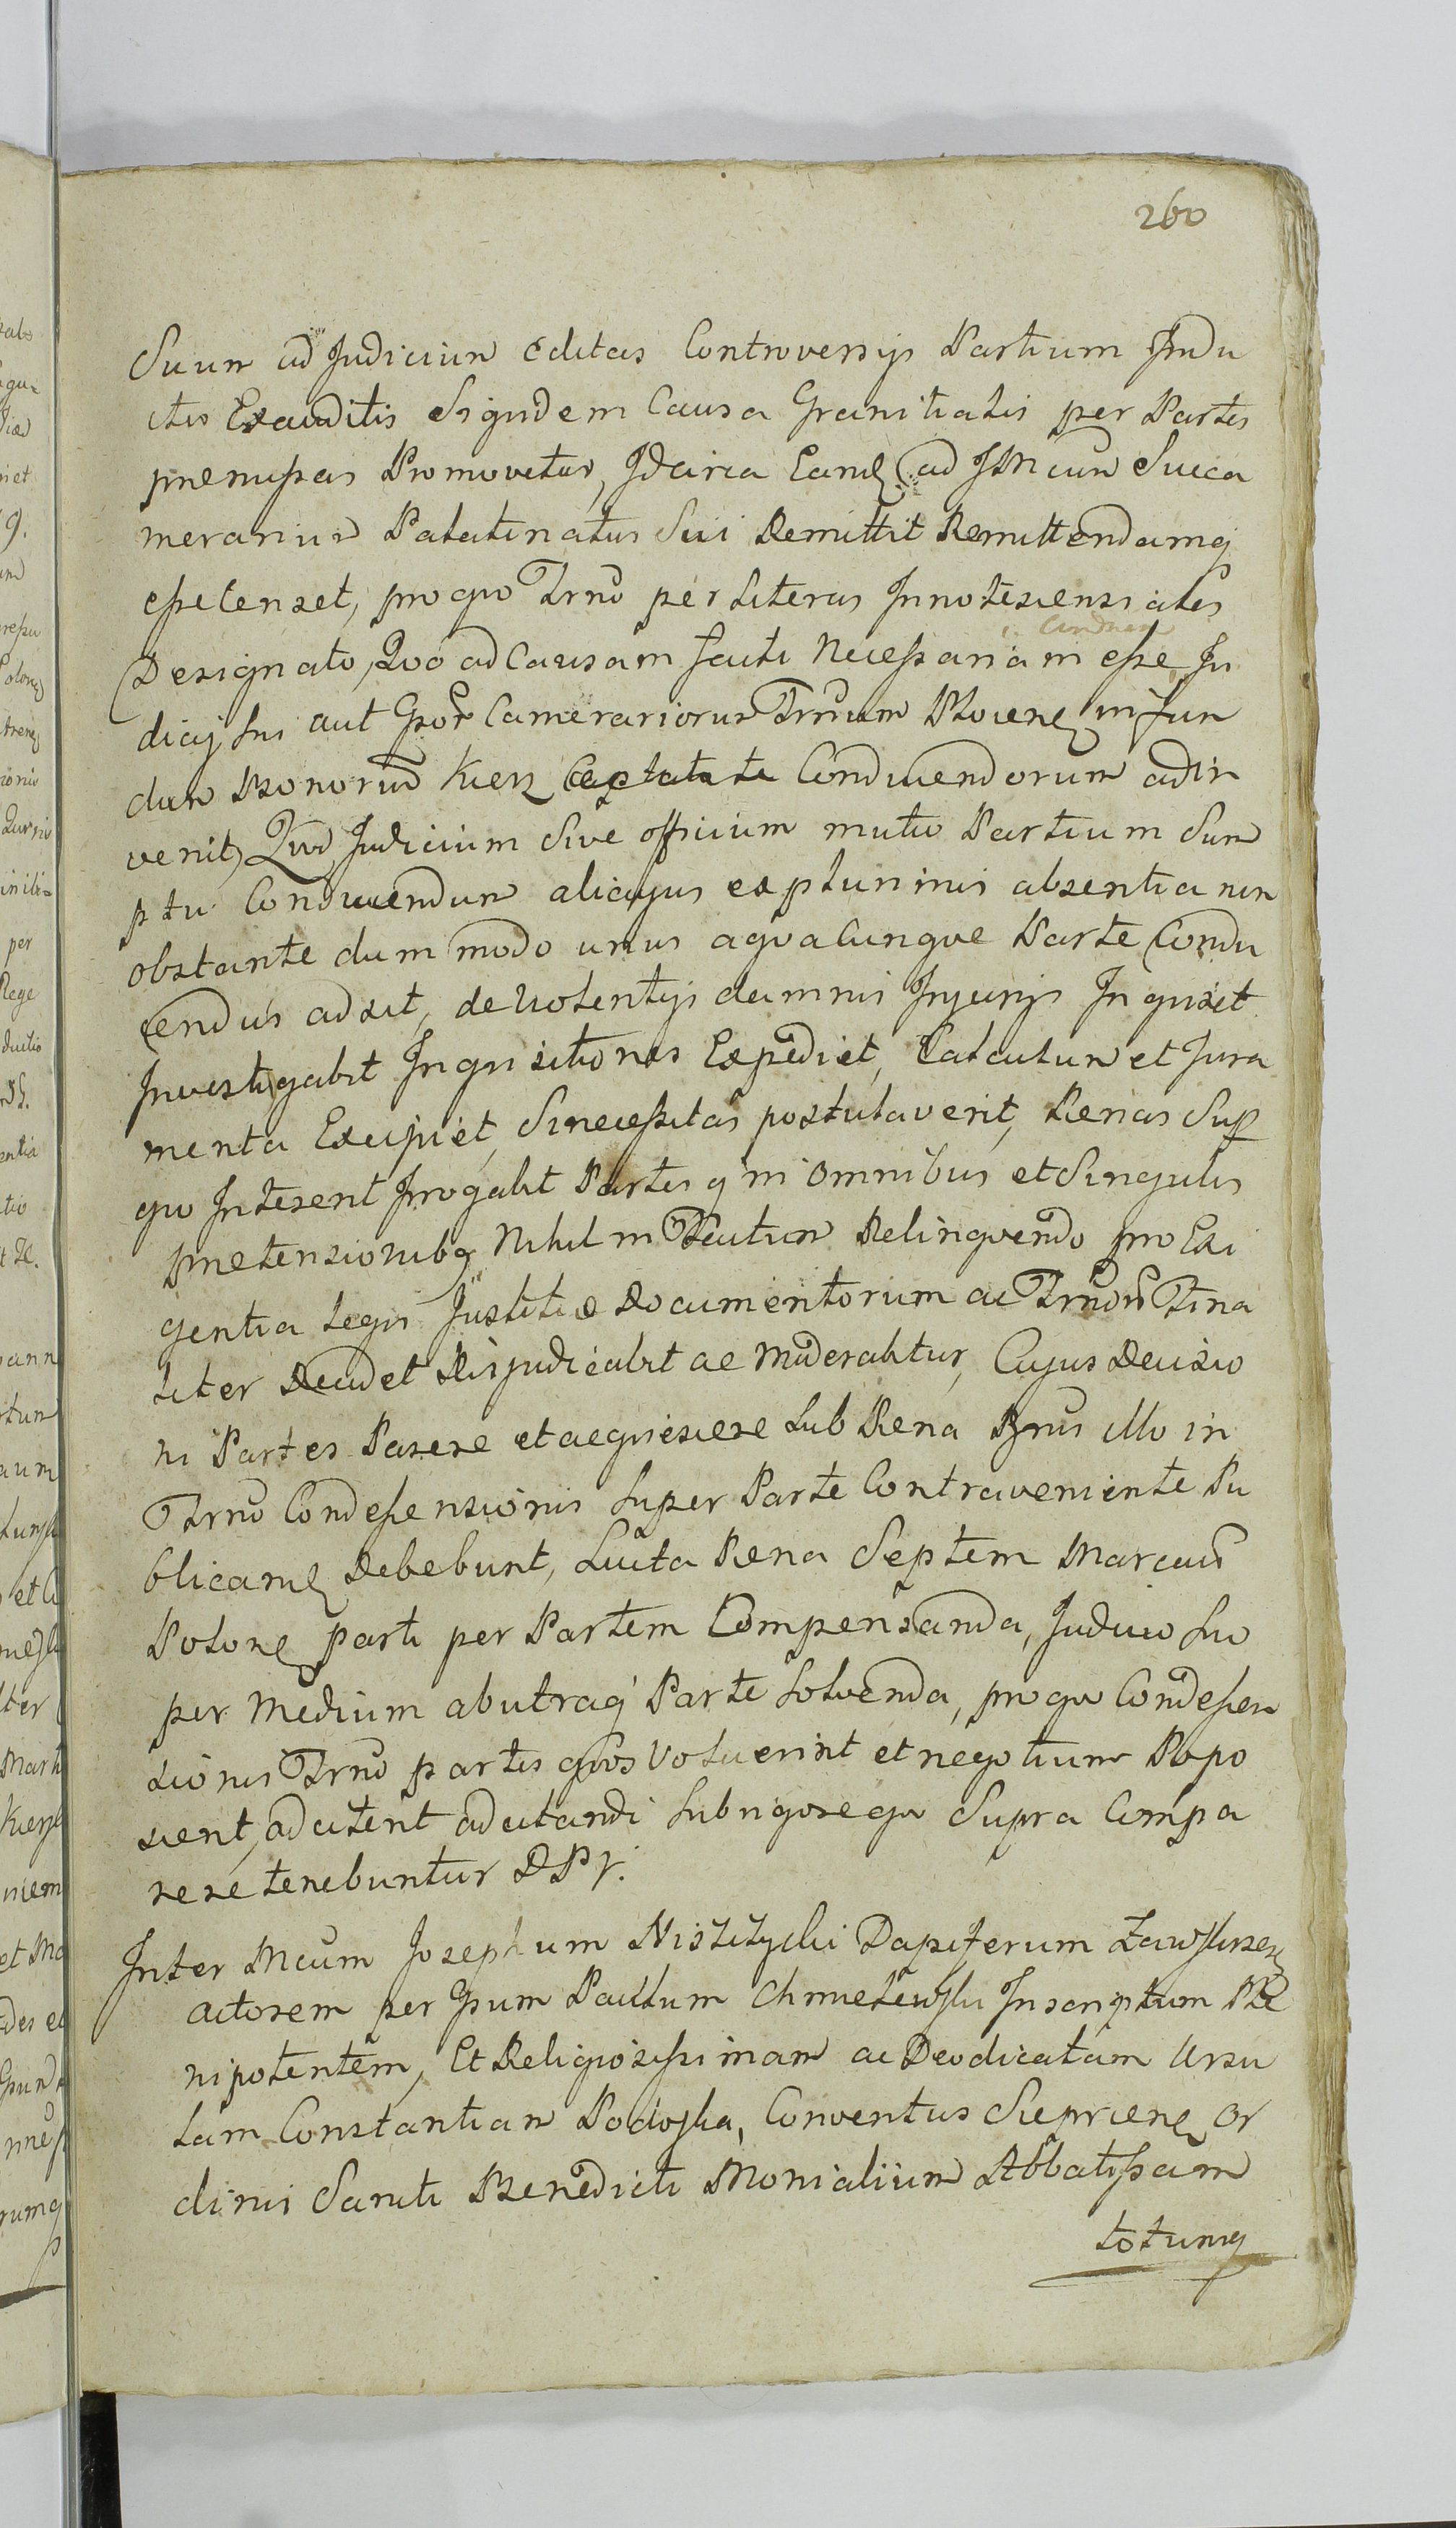 260
Suum ad Judicium Editas Controversijs Partium Indu
ctis Exauditis Siquidem Causa Granitialis per Partes
præmissas Promovetur, Idcirco Eand ad Jttm cum Succa
merarium Palatinatus Sui Remittit Remittendamq
esse Censet, pro quo Trno per Literas Innotescensiales
Designato, Quo ad Causam facti Necessariam esse Ju
dicij sui aut Gsor Camerariorum Trrium Plocens in fun
dum Bonorum Kiersz Conducendorum adin
venit, Quod Judicium Sive officium mutuo Partium Sum
ptu Conducendum alicujus ex ptim inis absentia non
obstante dum modo unus a quacunque Parte Condu
cendus adsit, de Violentijs damnis Injurijs Inquiret
Investigabit Inquisitiones Expediet, Calculum et Jura
menta Excipiet, Si necessitas postulaverit, Penas Sup
quo Intererit Irrogabit Partes q in omnibus et Singulis
prætensionibq Nihil in Tractum Relinquendo pro Exi
gentia Legis Justitiæ Documentorum ac Trnor Fina
liter Decidet Disjudicabit ac Moderabitur, Cujus Decisio
ni Partes Parere et acquiescere sub Pena Bnis illo in
Trno Condescensionis super Parte Contraveniente Pu
blicand Debebunt, Lucta Pena Septem Marcarum
Polon parti per Partem Compensanda, Judicio suo
per Medium ab utraq Parte Solvenda, pro quo Condescen
sionis Trno partes quos Voluerint et negotium Popo
scerit, adcitent adcitandi sub rigore quo Supra Compa
rere tenebuntur DPr.
Inter Mcum Josephum Niszczycki Dapiferum Zawskrzen
actorem per Gsum Paulum Chmielewski Inscriptum Ple
nipotentem, Et Religiosissimam ac Deodicatam Ursu
lam Constantiam Podoska, Conventus Sieprcens Or
dinis Sancti Benedicti Monialium Abbatissam
totumq